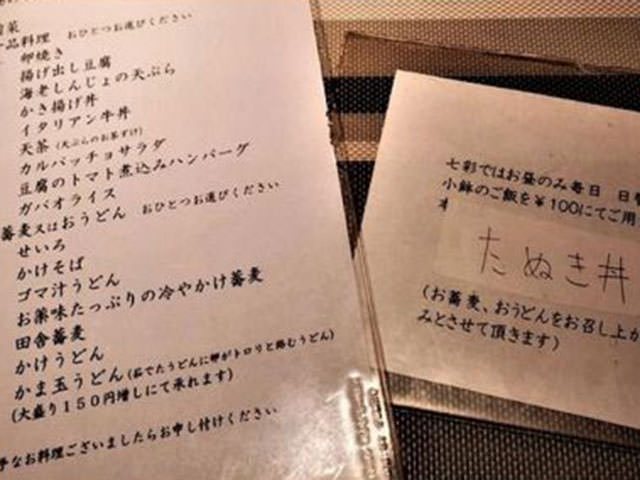 前菜
一品料理 おひとつお選びください
卵焼き
揚げ出し豆腐
海老しんじょの天ぷら
かき揚げ丼
イタリアン牛丼
天茶(天ぷらのお茶すけ)
カルパッチョサラダ
豆腐のトマト煮込みハンバーグ
ガパオライス
蕎麦又はおうどん おひとつお選びください
せいろ
かけそば
ゴマ汁うどん
お薬味たっぷりの冷やかけ蕎麦
田舎蕎麦
かけうどん
かま玉うどん(茹でたうどんに卵がトロリと絡むうどん)
(大盛り150円増しにて承れます)
手なお料理ございましたらお申し付けください
七彩ではお昼のみ毎日 日替
小鉢のご飯を¥100にてご用
たぬき丼
(お蕎麦、おうどんをお召し上が
みとさせて頂きます)